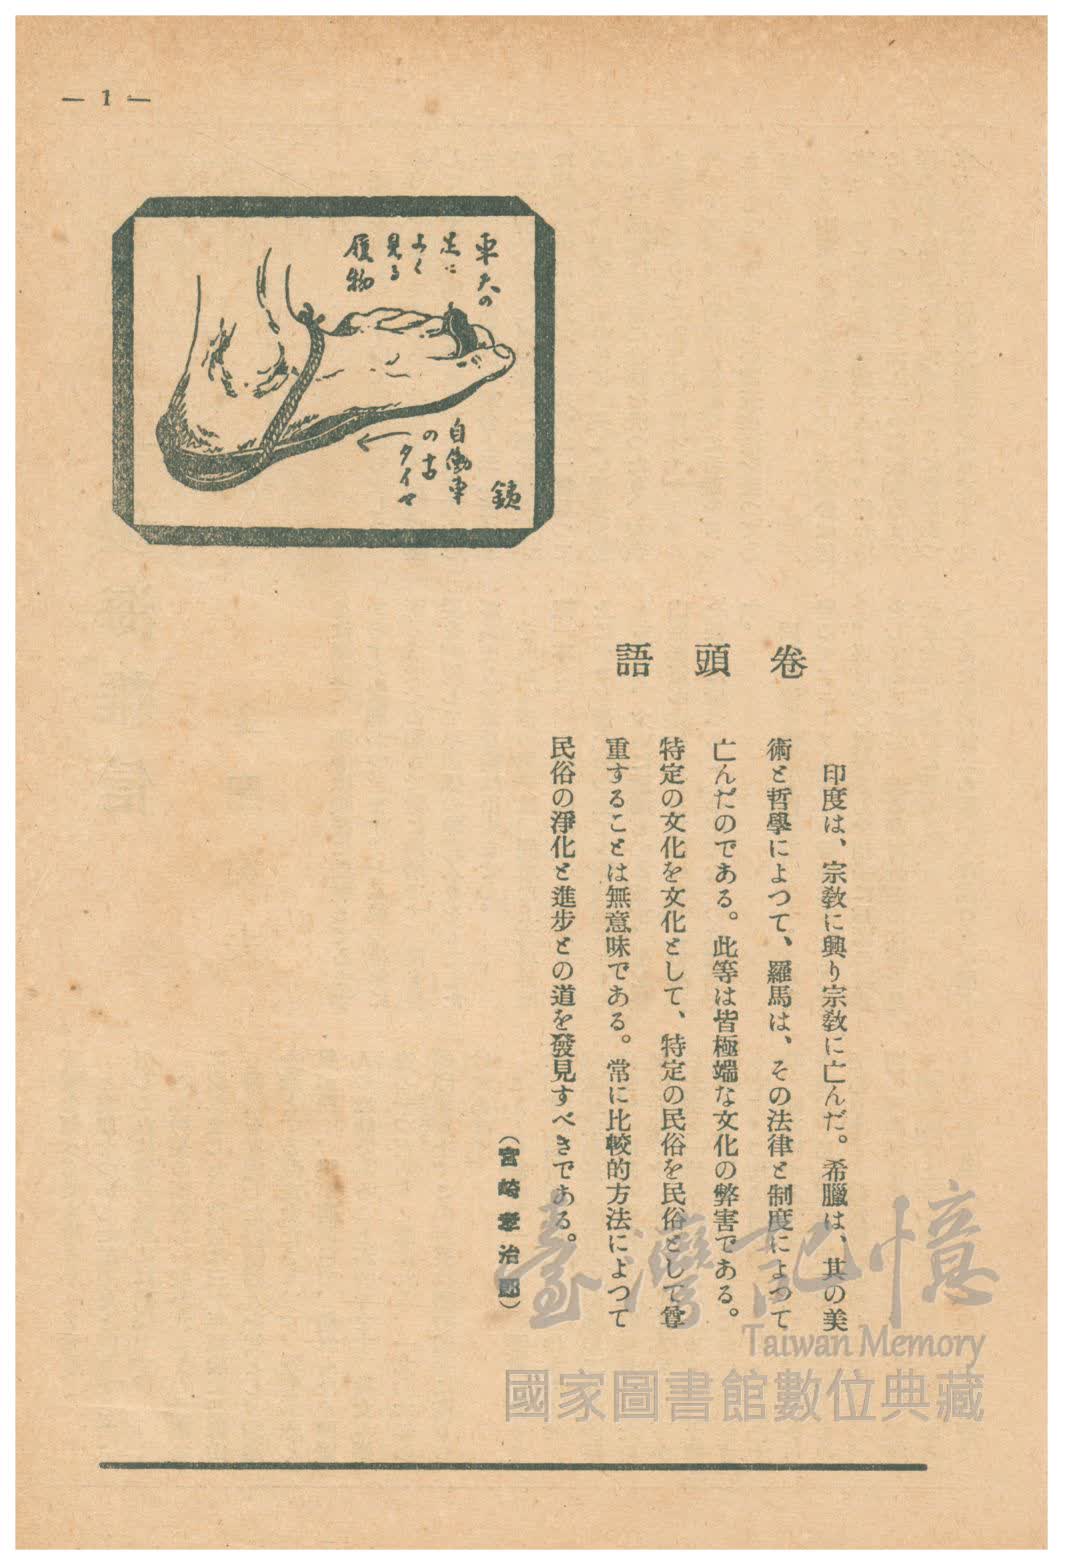 — 1 —
車夫の
足に
よく
見る
履物
自働車
の古
タイヤ
銕
卷頭語
印度は、宗敎に興り宗敎に亡んだ。希臘は、其の美
術と哲學によつて、羅馬は、その法律と制度によつて
亡んだのである。此等は皆極端な文化の弊害である。
特定の文化を文化として、特定の民俗を民俗として尊
重することは無意味である。常に比較的方法によつて
民俗の淨化と進步との道を發見すべきである。
（宮崎孝治郎）
臺灣記憶
Taiwan Memory
國家圖書館數位典藏